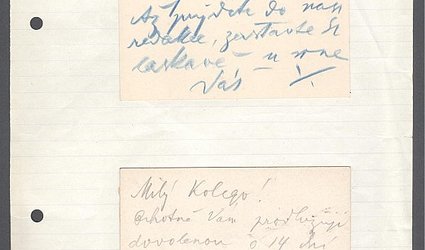 Až přijdete do naší
redakce, zastavte se
laskavě u mne
Váš
Milý Kolego!
Ochotně Vam prodlužuji
dovolenou o 14 dní